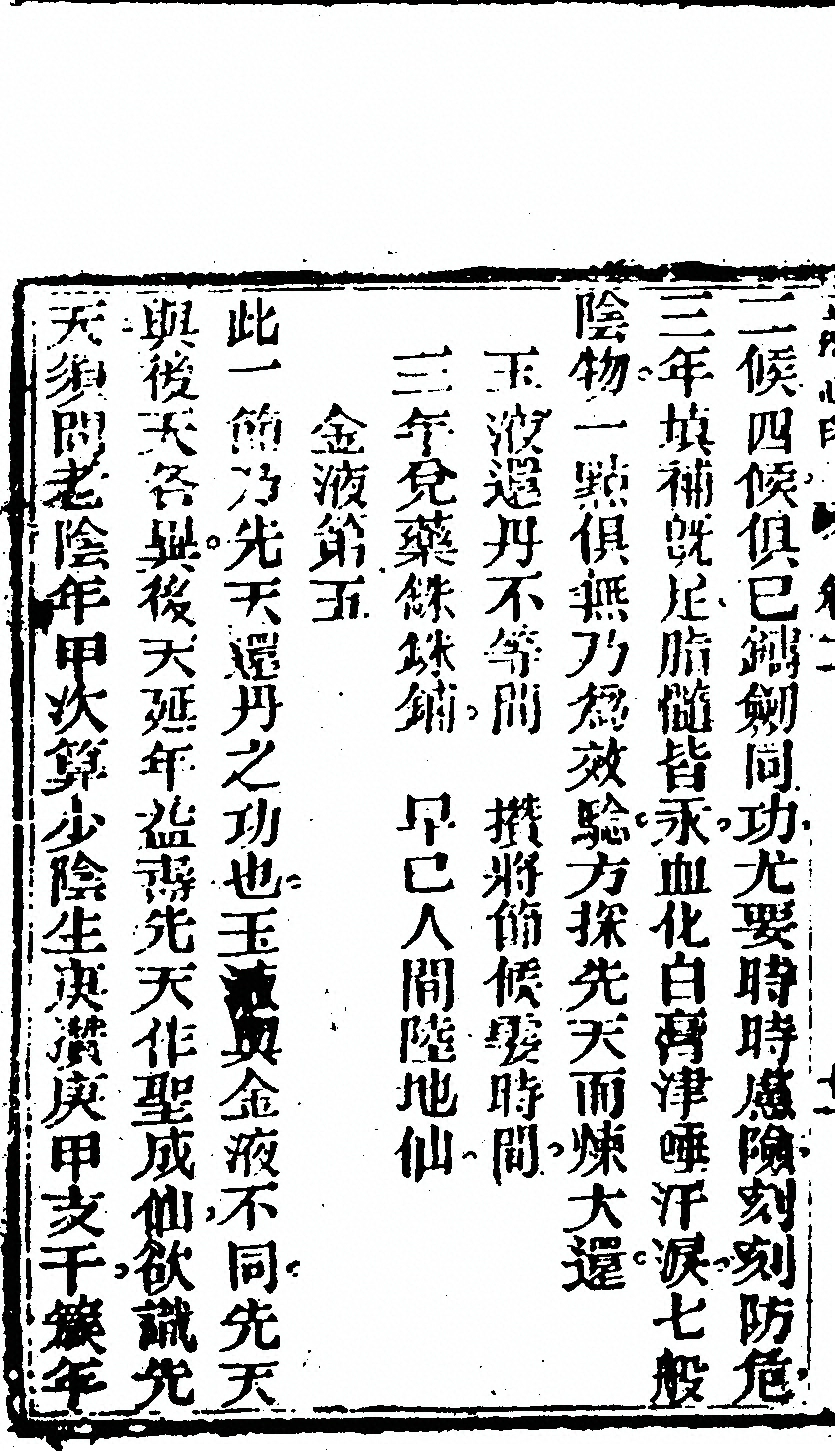 二候四候俱已鑄劍同功尤要時時慮險刻刻防危
三年填補既足脂髓皆汞血化白膏津唾汗淚七般
陰物一點俱無乃爲效驗方探先天而煉大還
玉液還丹不等閒　攢將節候霎時間
三年兌藥銖銖鋪　早已人間陸地仙
金液第五
此一節乃先天還丹之功也玉液與金液不同先天
與後天各異後天延年益壽先天作聖成仙欲識先
天須問老陰年甲次算少陰生庚攢庚甲支干簇年